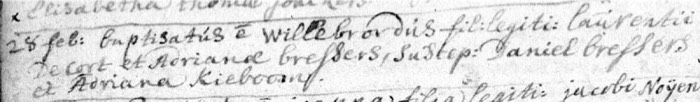 Elisabetha thoma
28 feb: baptisatus ē Willebrordus fili: legiti: laurentii
Decort et Adrianæ bressers, suscep: Daniel bressers
et Adriana Kieboom.
filia legiti: jacobi Noyen